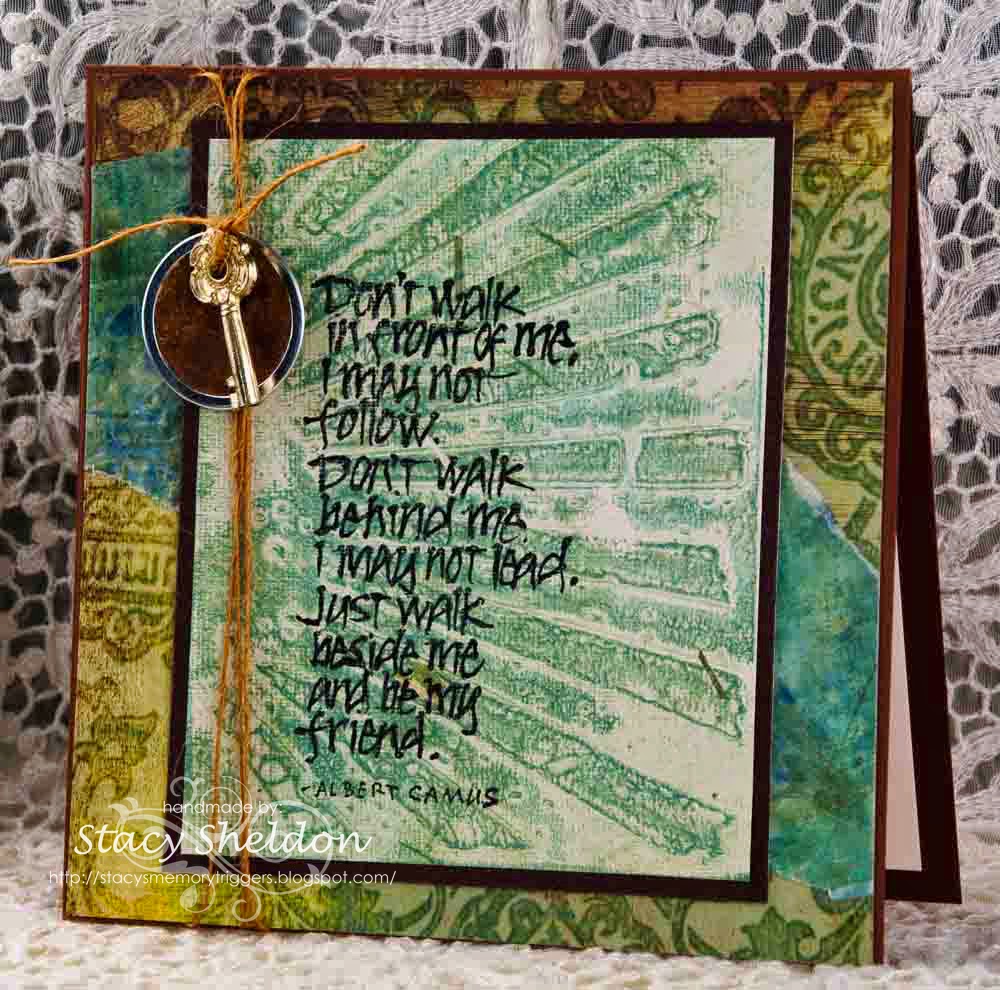 Don't walk
in front of me,
I may not
follow.
Don't walk
behind me.
I may not lead.
Just walk
beside me
and be my
friend.
-ALBERT CAMUS-
handmade by:
Stacy Sheldon
http://stacysmemorytriggers.blogspot.com/